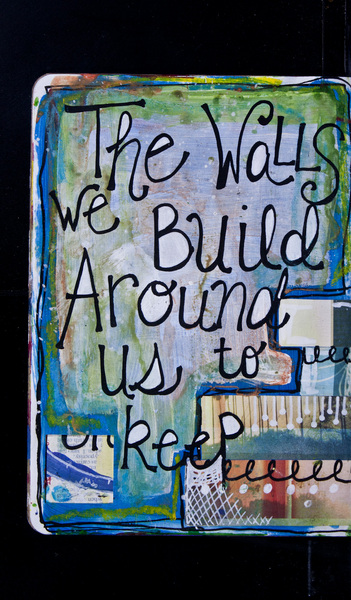 The Walls
we Build
Around
us to
keep